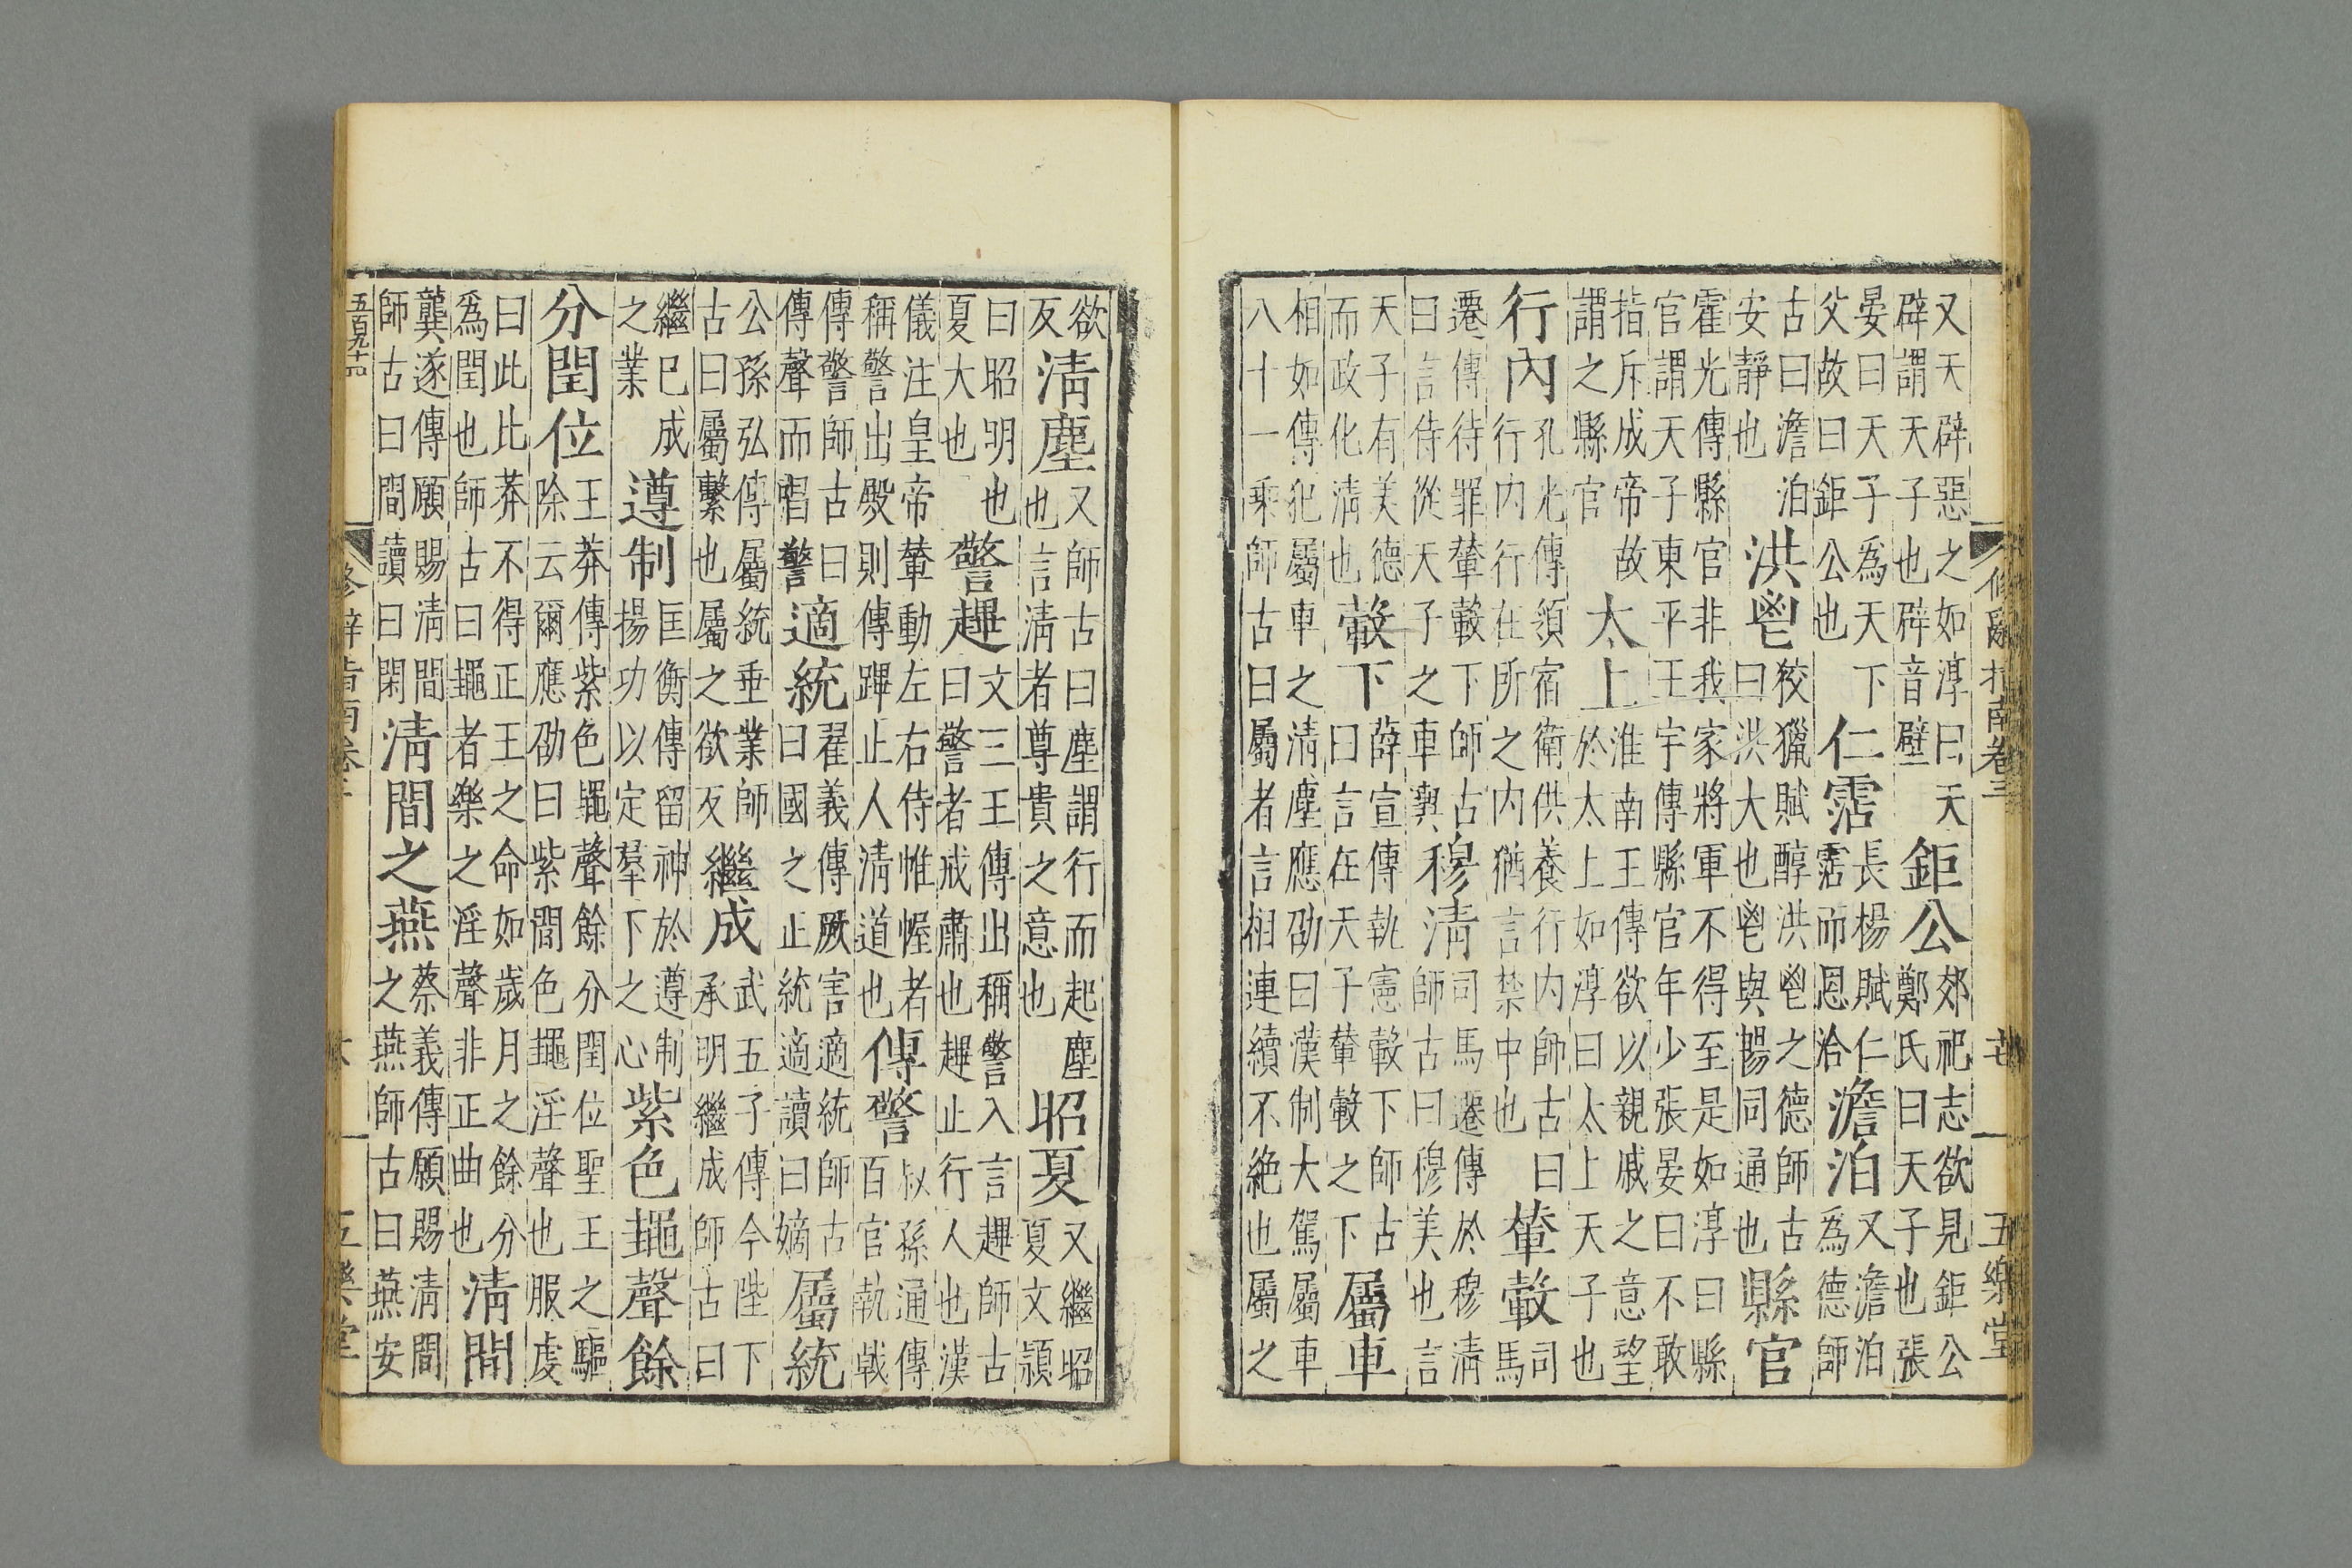 修辭指南卷三 五樂堂
又天辟惡之如淳曰天辟謂天子也辟音壁鉅公郊祀志欲見鉅公鄭氏曰天子也張
晏曰天子爲天下父故曰鉅公也仁霑長楊賦仁霑而恩洽澹泊又澹泊爲德師
古曰澹泊安靜也洪鬯狡獵賦醇洪鬯之德師古曰洪大也鬯與暢同通也縣官
霍光傳縣官非我家將軍不得至是如淳曰縣官謂天子東平王宇傳縣官年少張晏曰不敢
指斥成帝故謂之縣官太上淮南王傳欲以親戚之意望於太上如淳曰太上天子也
行內孔光傳須宿衛供養行内師古曰行内行在所之内猶言禁中也輦轂司馬
遷傳待罪輦轂下師古曰言侍從天子之車輿穆清司馬遷傳於穆清師古曰穆美也言
天子有美德而政化清也轂下薛宣傳執憲轂下師古曰言在天子輦轂之下屬車
相如傳犯屬車之清塵應劭曰漢制大駕屬車八十一乘師古曰屬者言相連續不絶也屬之
欲反清塵又師古曰塵謂行而起塵也言清者尊貴之意也昭夏又繼昭夏文頴
曰昭明也夏大也警䟆文三王傳出稱警入言䟆師古曰警者戒肅也䟆止行人也漢
儀注皇帝輦動左右侍帷幄者稱警出殿則傳蹕止人清道也傳警叔孫通傳百官執戟
傳警師古曰傳聲而唱警適統翟義傳厥害適統師古曰國之止統適讀曰嫡屬統
公孫弘傳屬統垂業師古曰屬繫也屬之欲反繼成武五子傳今陛下承明繼成師古曰
繼已成之業遵制匡衡傳留神於遵制揚功以定羣下之心紫色䵷聲餘
分閏位王莽傳紫色䵷聲餘分閏位聖王之驅除云爾應劭曰紫間色䵷淫聲也服虔
曰此比莽不得正王之命如歲月之餘分爲閏也師古曰䵷者樂之淫聲非正曲也清間
龔遂傳願賜清間師古曰間讀曰閑清間之燕蔡義傳願賜清間之燕師古曰燕安
五百九十四